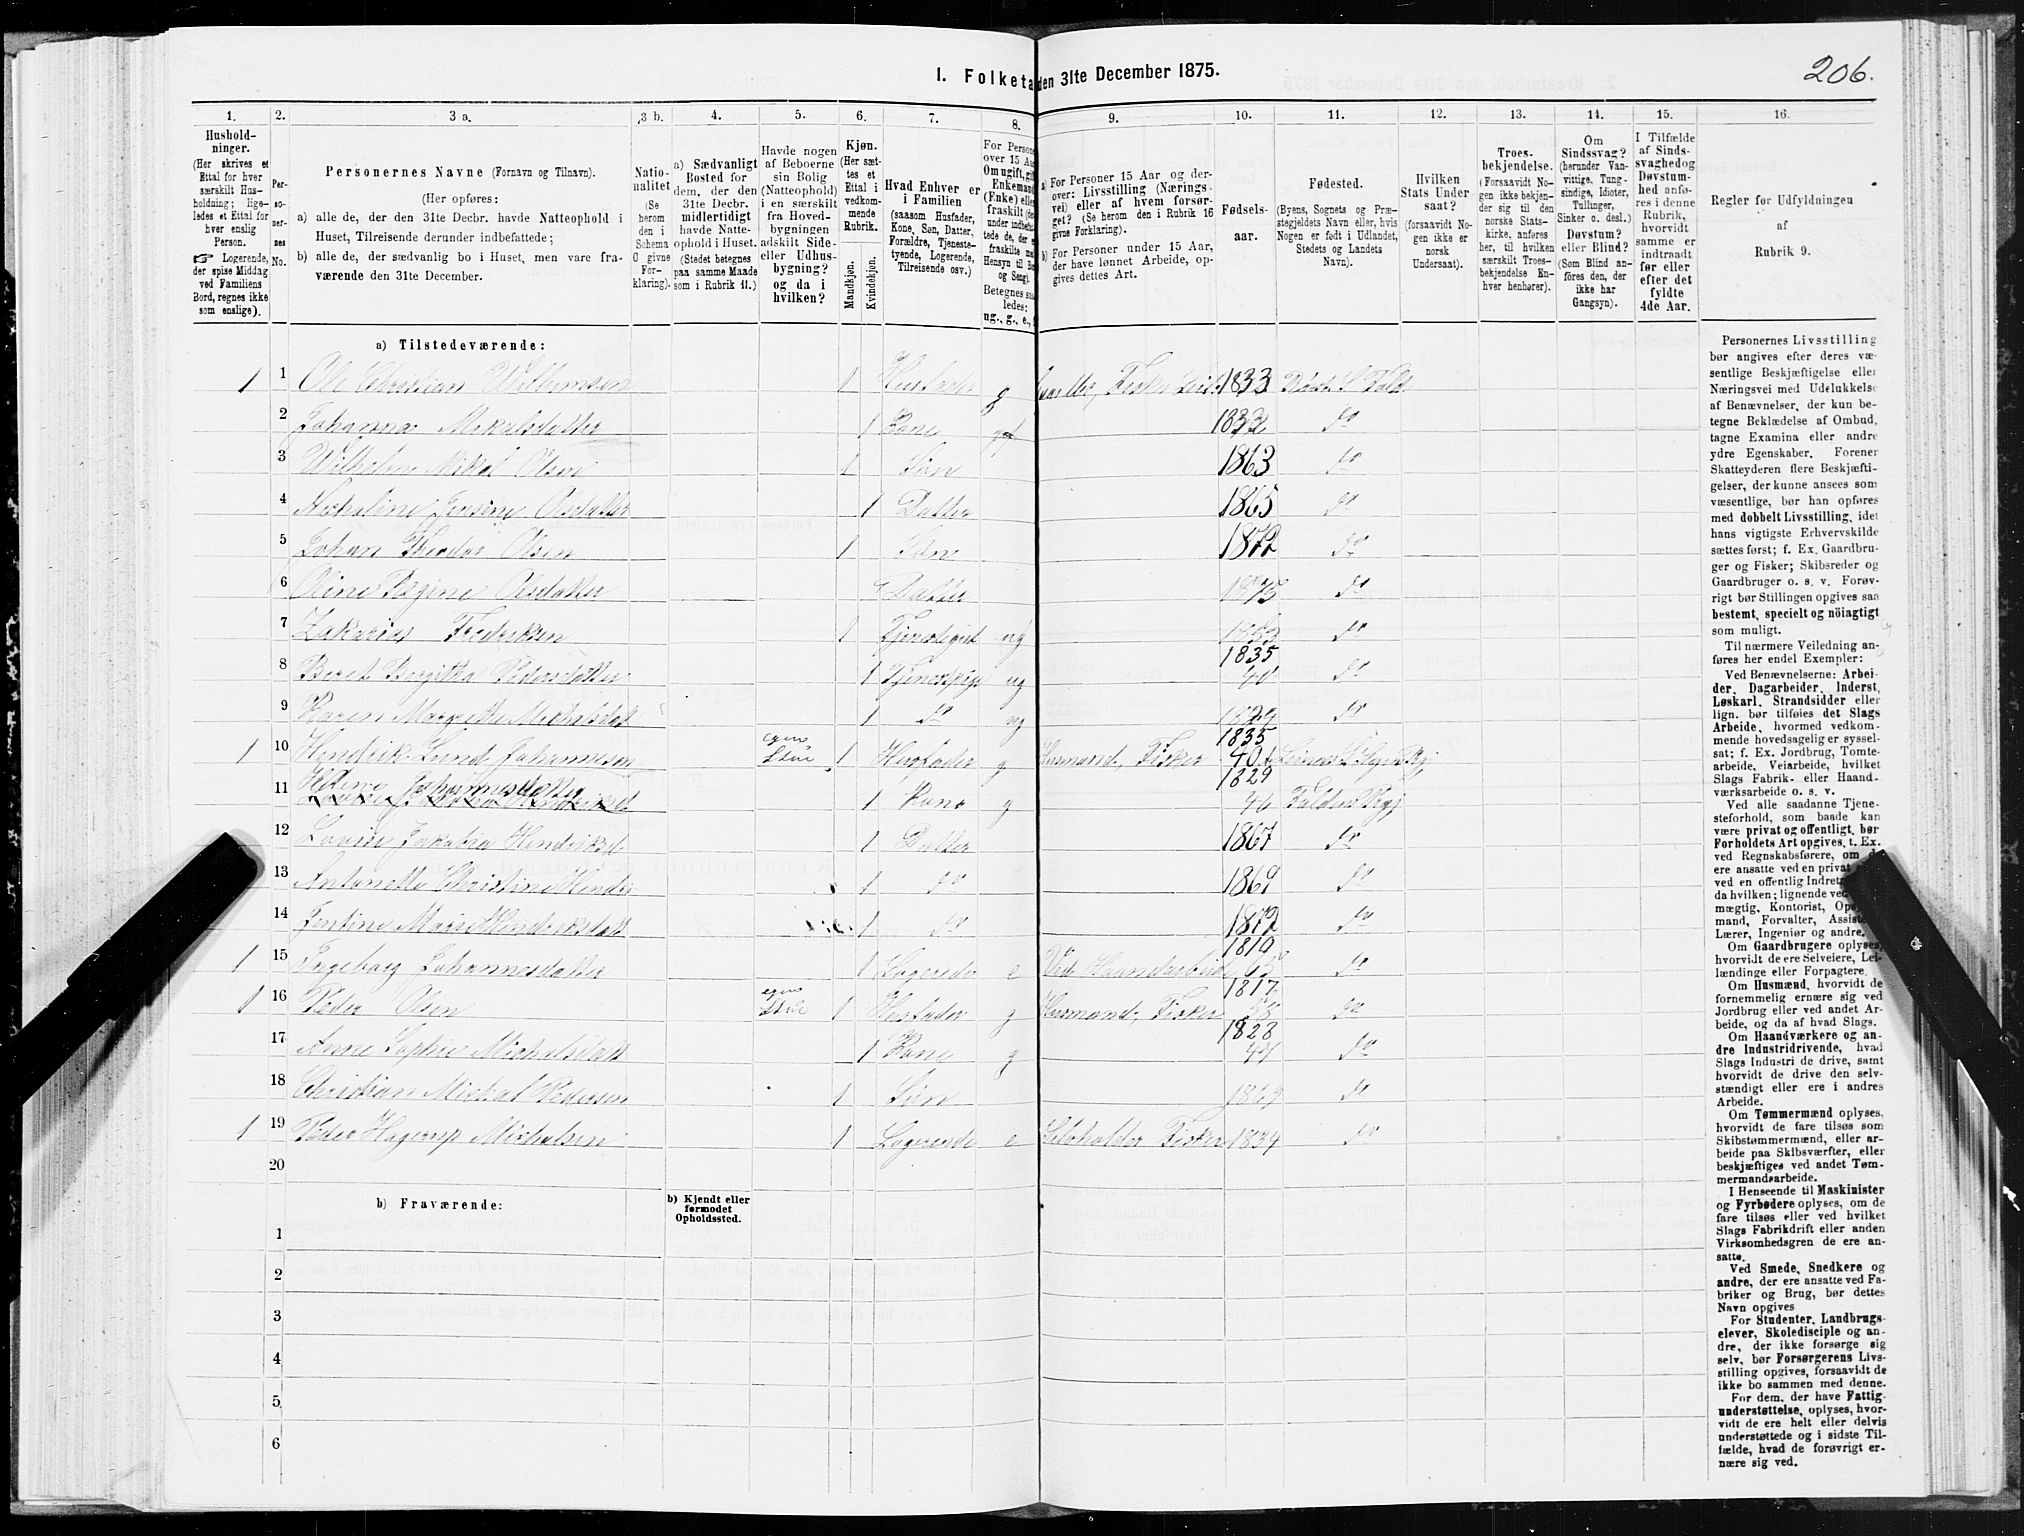 206.
I. Folketa den 31te December 1875.
1. 2. 3 a. 3 b. 4. 5. 6. 7. 8. 9. 10. 11. 12. 13. 14. 15. 16.
Hushold-
ninger.
(Her skrives et
Ettal for hver
særskilt Hus-
holdning; lige-
ledes et Ettal for
hver enslig
Person.
☞ Logerende,
der spise Middag
ved Familiens
Bord, regnes ikke
som enslige).
Per-
so-
ner-
nes
No.
Personernes Navne (Fornavn og Tilnavn).
(Her opføres:
a) alle de, der den 31te Decbr. havde Natteophold i
Huset, Tilreisende derunder indbefattede;
b) alle de, der sædvanlig bo i Huset, men vare fra-
værende den 31te December.
Natio-
nalitet
(Se
herom
den i
Schema
O givne
For-
klaring).
a) Sædvanligt
Bosted for
dem, der den
31te Decbr.
midlertidigt
havde Natte-
ophold i Huset.
(Stedet betegnes
paa samme Maade
som i Rubrik 11.)
Havde nogen
af Beboerne
sin Bolig
(Natteophold)
i en særskilt
fra Hoved-
bygningen
adskilt Side-
eller Udhus-
bygning?
og da i
hvilken?
Kjøn.
(Her sæt-
tes et
Ettal i
vedkom-
mende
Rubrik.
Mandkjøn.
Kvindekjøn.
Hvad Enhver er
i Familien
(saasom Husfader,
Kone, Søn, Datter,
Forældre, Tjeneste-
tyende, Logerende,
Tilreisende osv.)
For Persone
over 15 Aa
Om ugift, gif
Enkemand
(Enke) elle
fraskilt
tede de, der e
fraskilte m
Hensyn til Bo
og Seng).
Betegnes saa
ledes:
ug., g., e.,
a) For Personer 15 Aar og der-
over: Livsstilling (Nærings-
vei) eller af hvem forsør-
get? (Se herom den i Rubrik 16
givne Forklaring).
b) For Personer under 15 Aar,
der have lønnet Arbeide, op-
gives dettes Art.
Fødsels-
aar.
Fødested.
(Byens, Sognets og Præ-
stegjeldets Navn eller, hvis
Nogen er født i Udlandet,
Stedets og Landets
Navn).
Hvilken
Stats Under-
saat?
(forsaavidt No-
gen ikke er
norsk
Undersaat).
Troes-
bekjendelse.
(Forsaavidt No-
gen ikke bekjen-
der sig til den
norske Stats-
kirke, anføres
her, til hvilken
særskilt Troes-
bekjendelse En-
hver henhører).
Om
Sindssvag?
(herunder Van-
vittige, Tung-
sindige, Idioter,
Tullinger,
Sinker o. desl.)
Døvstum?
eller Blind?
(Som Blind an-
føres den, der
ikke har
Gangsyn).
I Tilfælde
af Sinds-
svaghed og
Døvstum-
hed anfø-
res i denne
Rubrik,
hvorvidt
samme er
indtraadt
før eller
efter det
fyldte
4de Aar.
Regler for Udfyldningen
af
Rubrik 9.
a) Tilstedeværende:
1 1 Ole Christian Wilhemsen 1 g Fisker 1833
2 Johanna Mikalsdatter 1 Kone do
3 Wilhelm Mikal Olsen 1 Søn 1863 do
4 Jensine Olsdatter 1 Datter 1865 do
5 Johan Theodor Olsen 1 Søn 1872 do
6 Oline Regine Olsdatter Datter 1875 do
7 Zakarias Fredriksen 1 ug do
8 Beret Birgitha Pedersdatter 1 Tjenestpige ug 1835 40 do
9 Karen Margrethe 1 do ug do
1 10 Hendrik Lund Johannesen egen Stue 1 Husfader g Husmand, Fisker 1835 40
11 Johannesdatter 1 Kone g 1829 46
12 Lovise Jakobia 1 Datter 1867 do
13 Christine 1 do 1869 do
14 Jentine Marie Hendriksdatt 1 do 1872 do
1 15 Ingeborg Johannesdatter 1 Logerende e Ved Haandarbeide 1810 65 do
1 16 Peder Olsen egen Stue 1 Husfader g Husmand, Fisker 1817 58 do
17 Anne Sophie Michalsdatt 1 Kone g 1828 47 do
18 Christian Mickal Pedersen 1 Søn 1869 do
1 19 Peder Hagerup Michalsen 1 Logerende e Selvholder Fisker 1834 do
20
b) Fraværende:
b) Kjendt eller
formodet
Opholdssted.
1
2
3
4
5
6
Personernes Livsstilling
bør angives efter deres væ-
sentlige Beskjæftigelse eller
Næringsvei med Udelukkelse
af Benævnelser, der kun be-
tegne Beklædelse af Ombud,
tagne Examina eller andre
ydre Egenskaber. Forener
Skatteyderen flere Beskjæfti-
gelser, der kunne ansees som
væsentlige, bør han opføres
med dobbelt Livsstilling, idet
hans vigtigste Erhvervskilde
sættes først; f. Ex. Gaardbru-
ger og Fisker; Skibsreder og
Gaardbruger o. s. v. Forøv-
rigt bør Stillingen opgives saa
bestemt, specielt og nöiagtigt
som muligt.
Til nærmere Veiledning an-
føres her endel Exempler:
Ved Benævnelserne: Arbei-
der, Dagarbeider, Inderst,
Løskarl, Strandsidder eller
lign. bør tilføies det Slags
Arbeide, hvormed vedkom-
mende hovedsagelig er syssel-
sat; f. Ex. Jordbrug, Tomte-
arbeide, Veiarbeide, hvilket
Slags Fabrik- eller Haand-
værksarbeide o. s. v.
Ved alle saadanne Tjene-
steforhold, som baade kan
være privat og offentligt, bør
Forholdets Art opgives, t. Ex.
ved Regnskabsførere, om d
ere ansatte ved en privat
ved en offentlig Indret
da hvilken; lignende ved
mægtig, Kontorist, Op
mand, Forvalter, Assiste
Lærer, Ingeniør og andre.
Om Gaardbrugere oplyses,
hvorvidt de ere Selveiere, Lei-
lændinge eller Forpagtere.
Om Husmænd, hvorvidt de
fornemmelig ernære sig ved
Jordbrug eller ved andet Ar-
beide, og da af hvad Slags.
Om Haandværkere og an-
dre Industridrivende, hvad
Slags Industri de drive, samt
hvorvidt de drive den selv-
stændigt eller ere i andres
Arbeide.
Om Tømmermænd oplyses,
hvorvidt de fare tilsøs som
Skibstømmermænd, eller ar-
beide paa Skibsværfter, eller
beskjæftiges ved andet Tøm-
mermandsarbeide.
I Henseende til Maskinister
og Fyrbødere oplyses, om de
fare tilsøs eller ved hvilket
Slags Fabrikdrift eller anden
Virksomhedsgren de ere an-
satte.
Ved Smede, Snedkere og
andre, der ere ansatte ved Fa-
briker og Brug, bør dettes
Navn opgives
For Studenter, Landbrugs-
elever, Skoledisciple og an-
dre, der ikke forsørge sig
selv, bør Forsørgerens Livs-
stilling opgives, forsaavidt de
ikke bo sammen med denne.
For dem, der have Fattig-
understøttelse, oplyses, hvor-
vidt de ere helt eller delvis
understøttede og i sidste Til-
fælde, hvad de forøvrigt er-
nære sig ved.